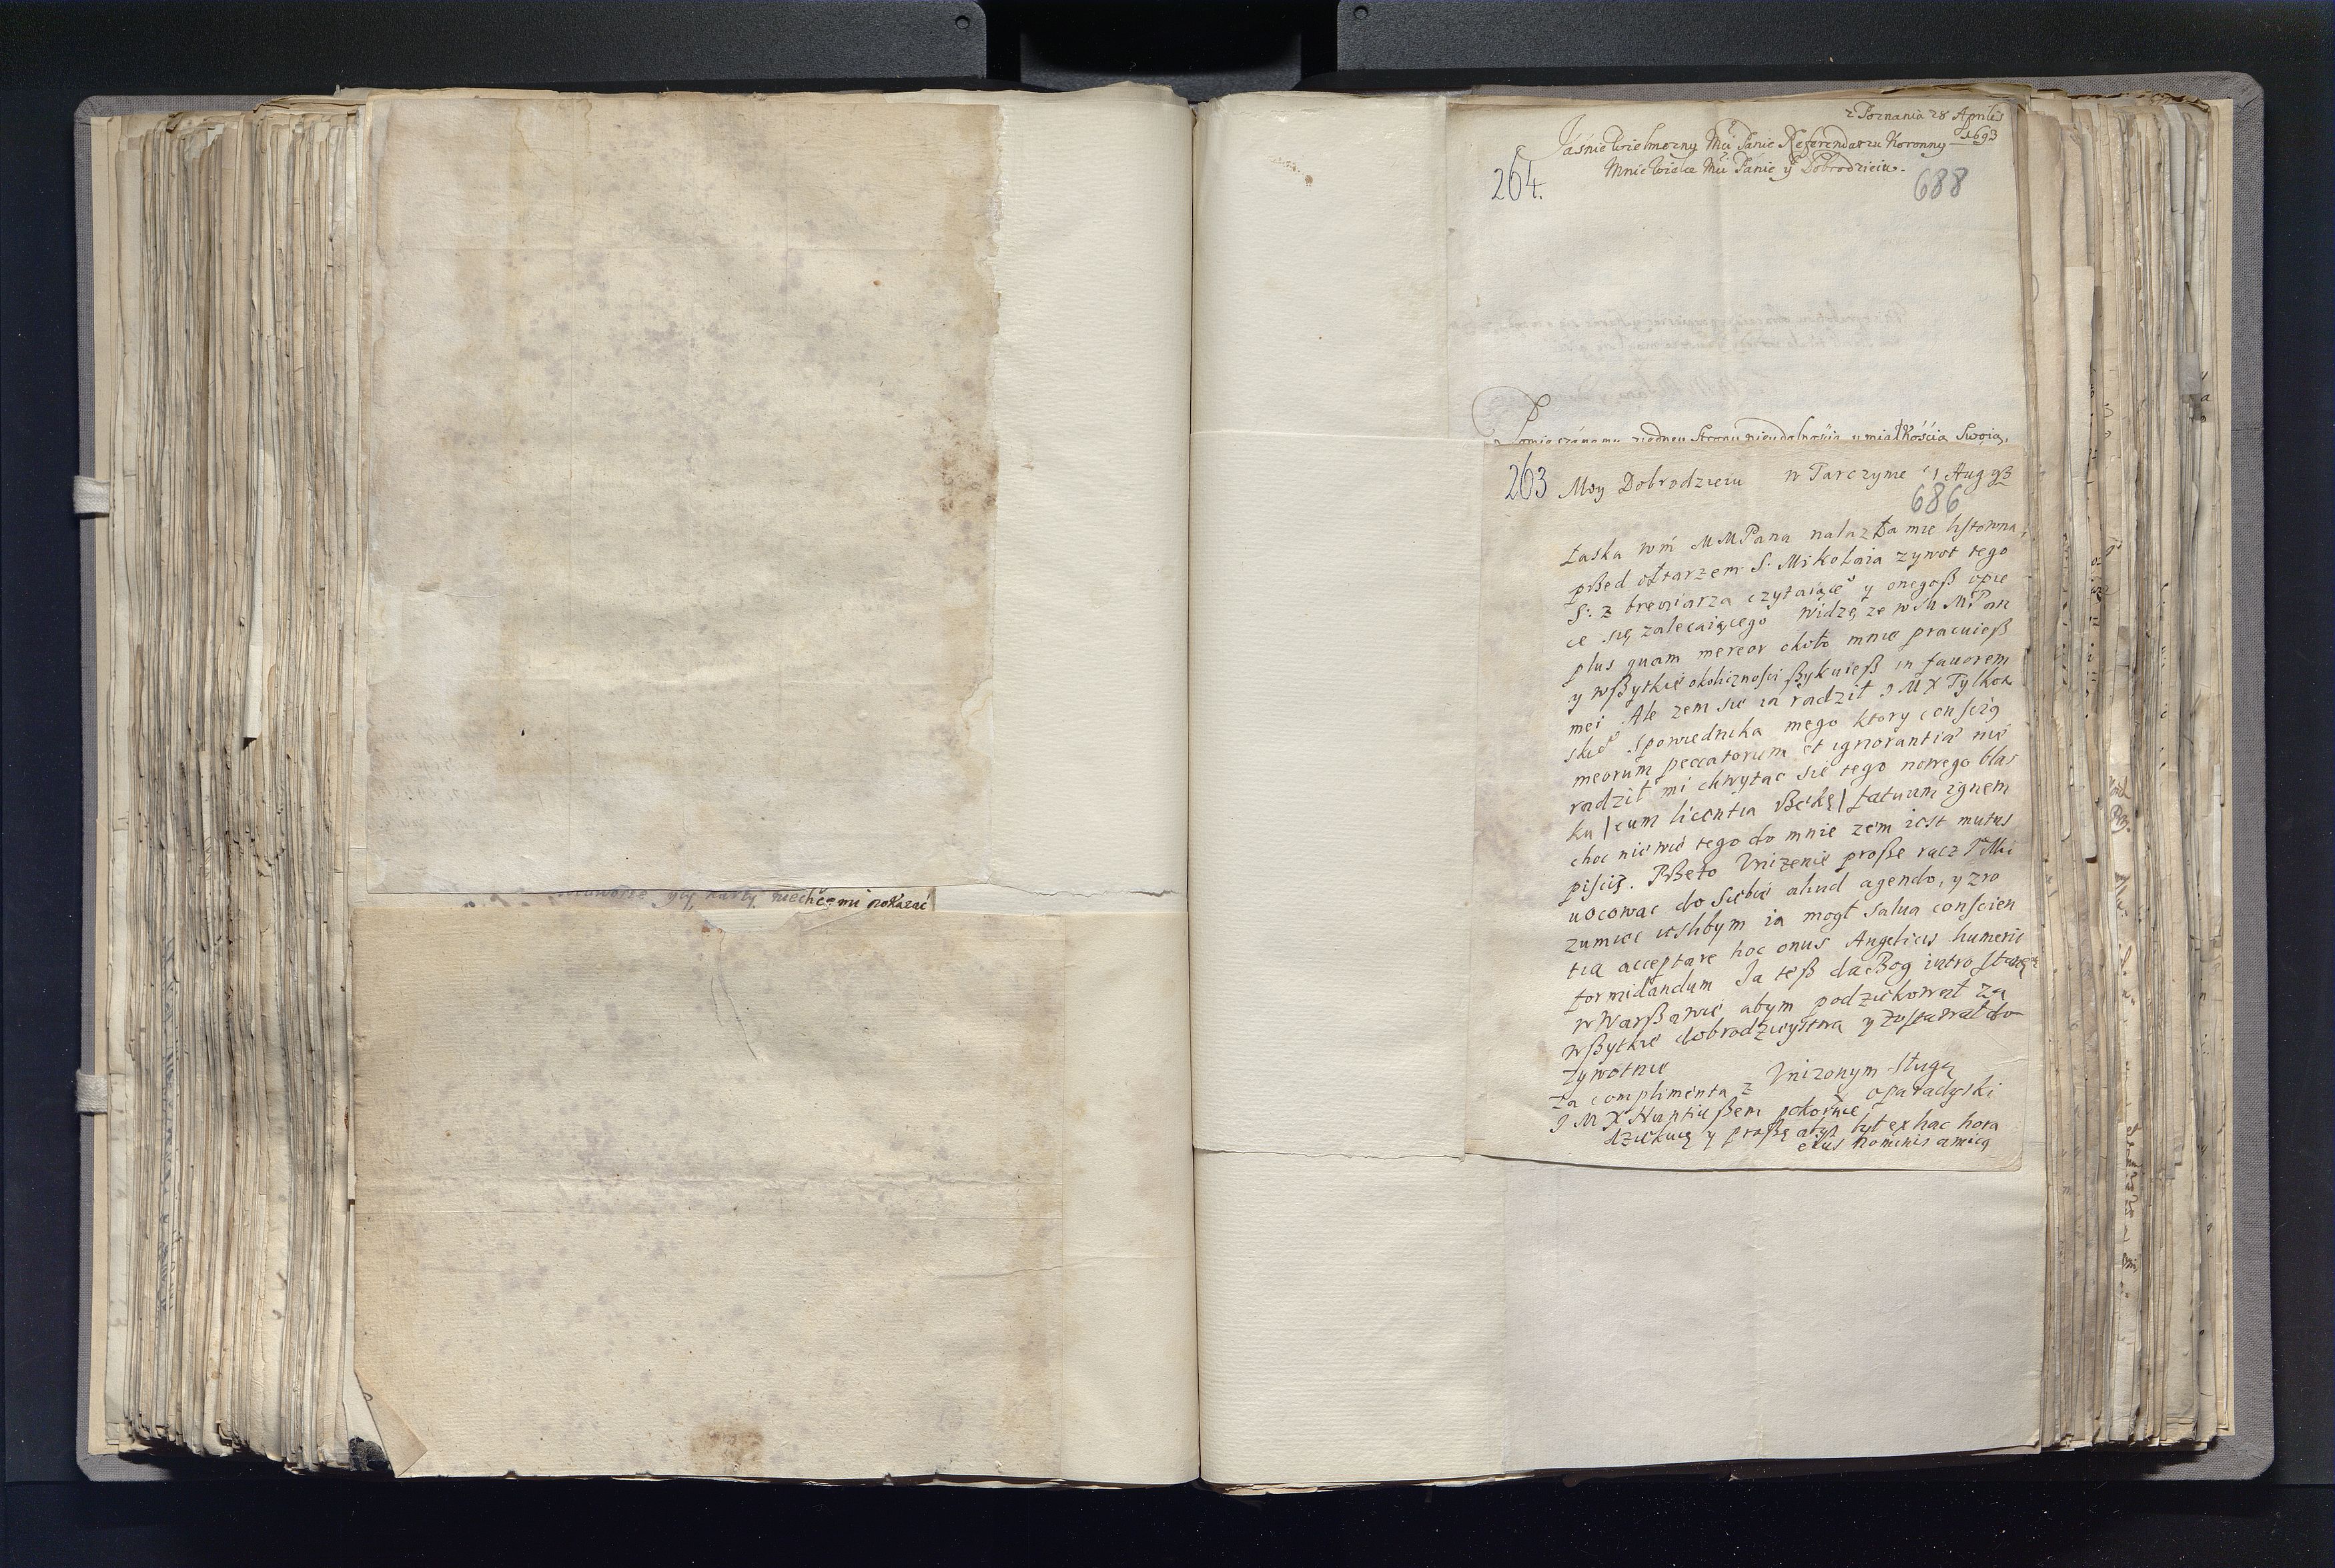 niechce mi pokazać
z Poznania 28 Aprilis
1693
Jaśnie Wielmozny Mci Panie Referendarzu Koronny
Mnie Wielce Mci Panie y Dobrodzieiu.
264.
688
nieudolnością y miałkością Swoią,
263
Moy Dobrodzieiu w Tarczynie Aug 93
686
Łaska wm MMPana nalazła mie listowna,
pßed ołtarzem S. Mikołaia zywot tego
S: z breviarza czytaiące° y onegoß opie
ce się zalecaiącego Widzę ze wm MPan
plus quam mereor około mnie pracuieß
y wßytkie okolicznosci ßykuieß in fauorem
mei Ale zem sie ia radził J M X Tylkow
skie° Spowiednika mego ktory conscią
meorum peccatorum et ignorantiæ nie
radził mi chwytac sie tego nowego blas
ku | cum licentia | fatuum ignem
choc nie wie tego do mnie zem iest mutus
piscis. Pßeto Vnizenie proße racz JMci
uocowac do Siebie aliud agendo, y zro
zumiec iesli bym ia mogł salua conscien
tia acceptare hoc onus Angelicis humeris
formidandum Ia teß da Bog iutro stanę
w Warßawie abym podziekował za
wßytkie dobrodzieystwa y zostawał do
zywotnie Vnizonym sługą
za complimenta z X oparadyski
J M X Nuntiußem pokornie
dziekuię y proßę abyś był ex hac hora
eius hominis amicą